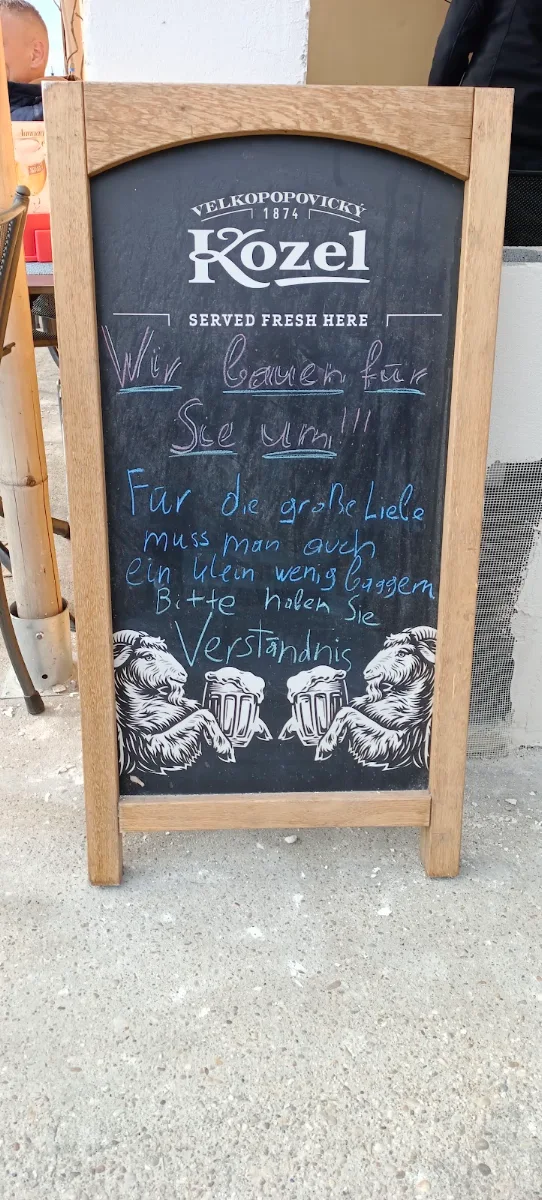 VELKOPOPOVICKÝ
1874
Kozel
SERVED FRESH HERE
Wir bauen für
Sie um!!!
Für die große Liebe
muss man auch
ein klein wenig baggern
Bitte haben Sie
Verständnis